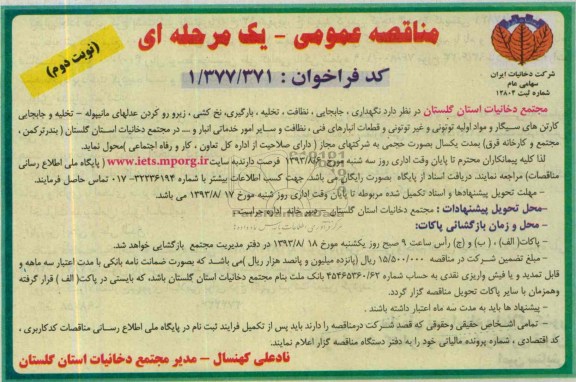 مناقصه عمومی - یک مرحله ای
(نوبت دوم)
کد فراخوان : ۱/۳۷۷/۳۷۱
شرکت دخانیات ایران
سهامی عام
شماره ثبت ۱۲۸۰۲
مجتمع دخانیات استان گلستان در نظر دارد نگهداری ، جابجایی ، نظافت ، تخلیه ، بارگیری، نخ کشی ، زیرو رو کردن عدلهای مانیپوله - تخلیه و جابجایی
کارتن های سیگار و مواد اولیه توتونی و غیر توتونی و قطعات انبارهای فنی ، نظافت و سایر امور خدماتی انبار و .... در مجتمع دخانیات استان گلستان ( بندرترکمن ،
مجتمع و کارخانه قرق) بمدت یکسال بصورت حجمی به شرکتهای مجاز ( دارای صلاحیت از اداره کل تعاون ، کار و رفاه اجتماعی )محول نماید.
لذا کلیه پیمانکاران محترم تا پایان وقت اداری روز سه شنبه مورخ ۱۳۹۳/۸/۶ فرصت دارند به سایت www.iets.mporg.ir ( پایگاه ملی اطلاع رسانی
مناقصات) مراجعه نمایند. دریافت اسناد از پایگاه بصورت رایگان می باشد. جهت کسب اطلاعات بیشتر با شماره ۳۲۲۳۶۱۹۴- ۰۱۷ تماس حاصل فرمایند.
- مهلت تحویل پیشنهادها و اسناد تکمیل شده مربوطه تا پایان وقت اداری روز شنبه مورخ ۱۳۹۳/۸/۱۷ می باشد.
-محل تحویل پیشنهادات : مجتمع دخانیات استان گلستان - دبیرخانه اداره حراست
- محل و زمان بازگشائی پاکات:
- پاکات( الف) ، ( ب) و (ج) رأس ساعت ۹ صبح روز یکشنبه مورخ ۱۳۹۳/۸/۱۸ در دفتر مدیریت مجتمع بازگشایی خواهد شد.
- مبلغ تضمین شرکت در مناقصه ۱۵/۵۰۰/۰۰۰ ریال (پانزده میلیون و پانصد هزار ریال )می باشد که بصورت ضمانت نامه بانکی با مدت اعتبار سه ماهه و
قابل تمدید و یا فیش واریزی نقدی به حساب شماره ۳۵۴۶۵۳۶۰/۶۲ بانک ملت بنام مجتمع دخانیات استان گلستان باشد، که بایستی در پاکت( الف ) قرار گرفته
وهمزمان با سایر پاکات تحویل مناقصه گزار گردد.
- پیشنهاد ها باید به مدت سه ماه اعتبار داشته باشند .
- تمامی اشخاص حقیقی وحقوقی که قصد شرکت درمناقصه را دارند باید پس از تکمیل فرایند ثبت نام در پایگاه ملی اطلاع رسانی مناقصات کدکاربری ،
کد اقتصادی ، شماره پرونده مالیاتی خود را به دفتر دستگاه مناقصه گزار اعلام نمایند.
نادعلی کهنسال - مدیر مجتمع دخانیات استان گلستان